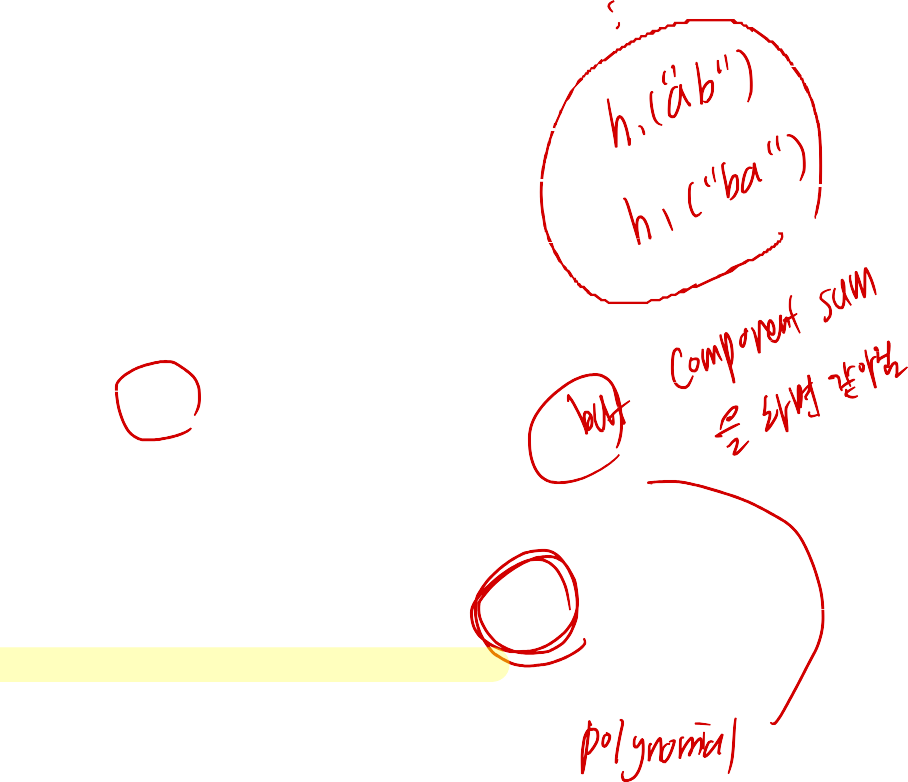 h₁("ab")
h₁("ba")
but component sum
을 하면 같아짐
polynomial